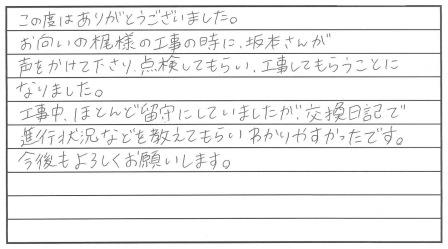 この度はありがとうございました。
お向いの梶様の工事の時に、坂本さんが
声をかけて下さり、点検してもらい、工事してもらうことに
なりました。
工事中、ほとんど留守にしていましたが、交換日記で
進行状況などを教えてもらいわかりやすかったです。
今後もよろしくお願いします。